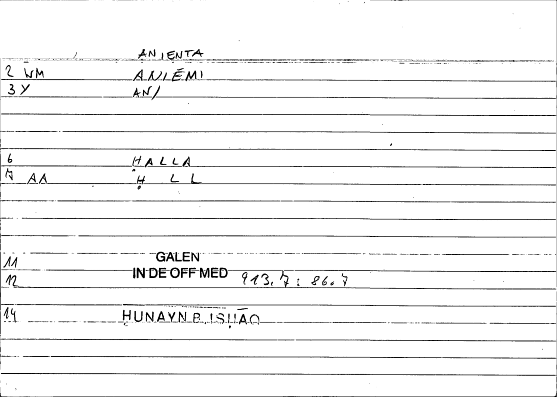 ANIENTA
2 WM ANIĒMI
3 Y AN/
6 ḤALLA
7 AA Ḥ L L
11 GALEN
12 IN DE OFF MED 913.7 : 86.7
14 ḤUNAYN B. ISḤĀQ